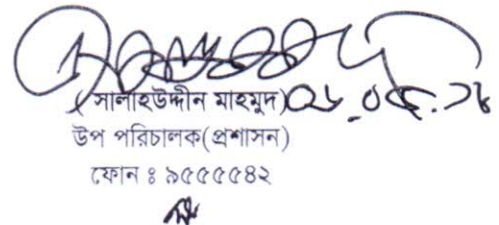 (সালাহউদ্দীন মাহমুদ)
উপ পরিচালক(প্রশাসন)
ফোন ঃ ৯৫৫৫৫৪২